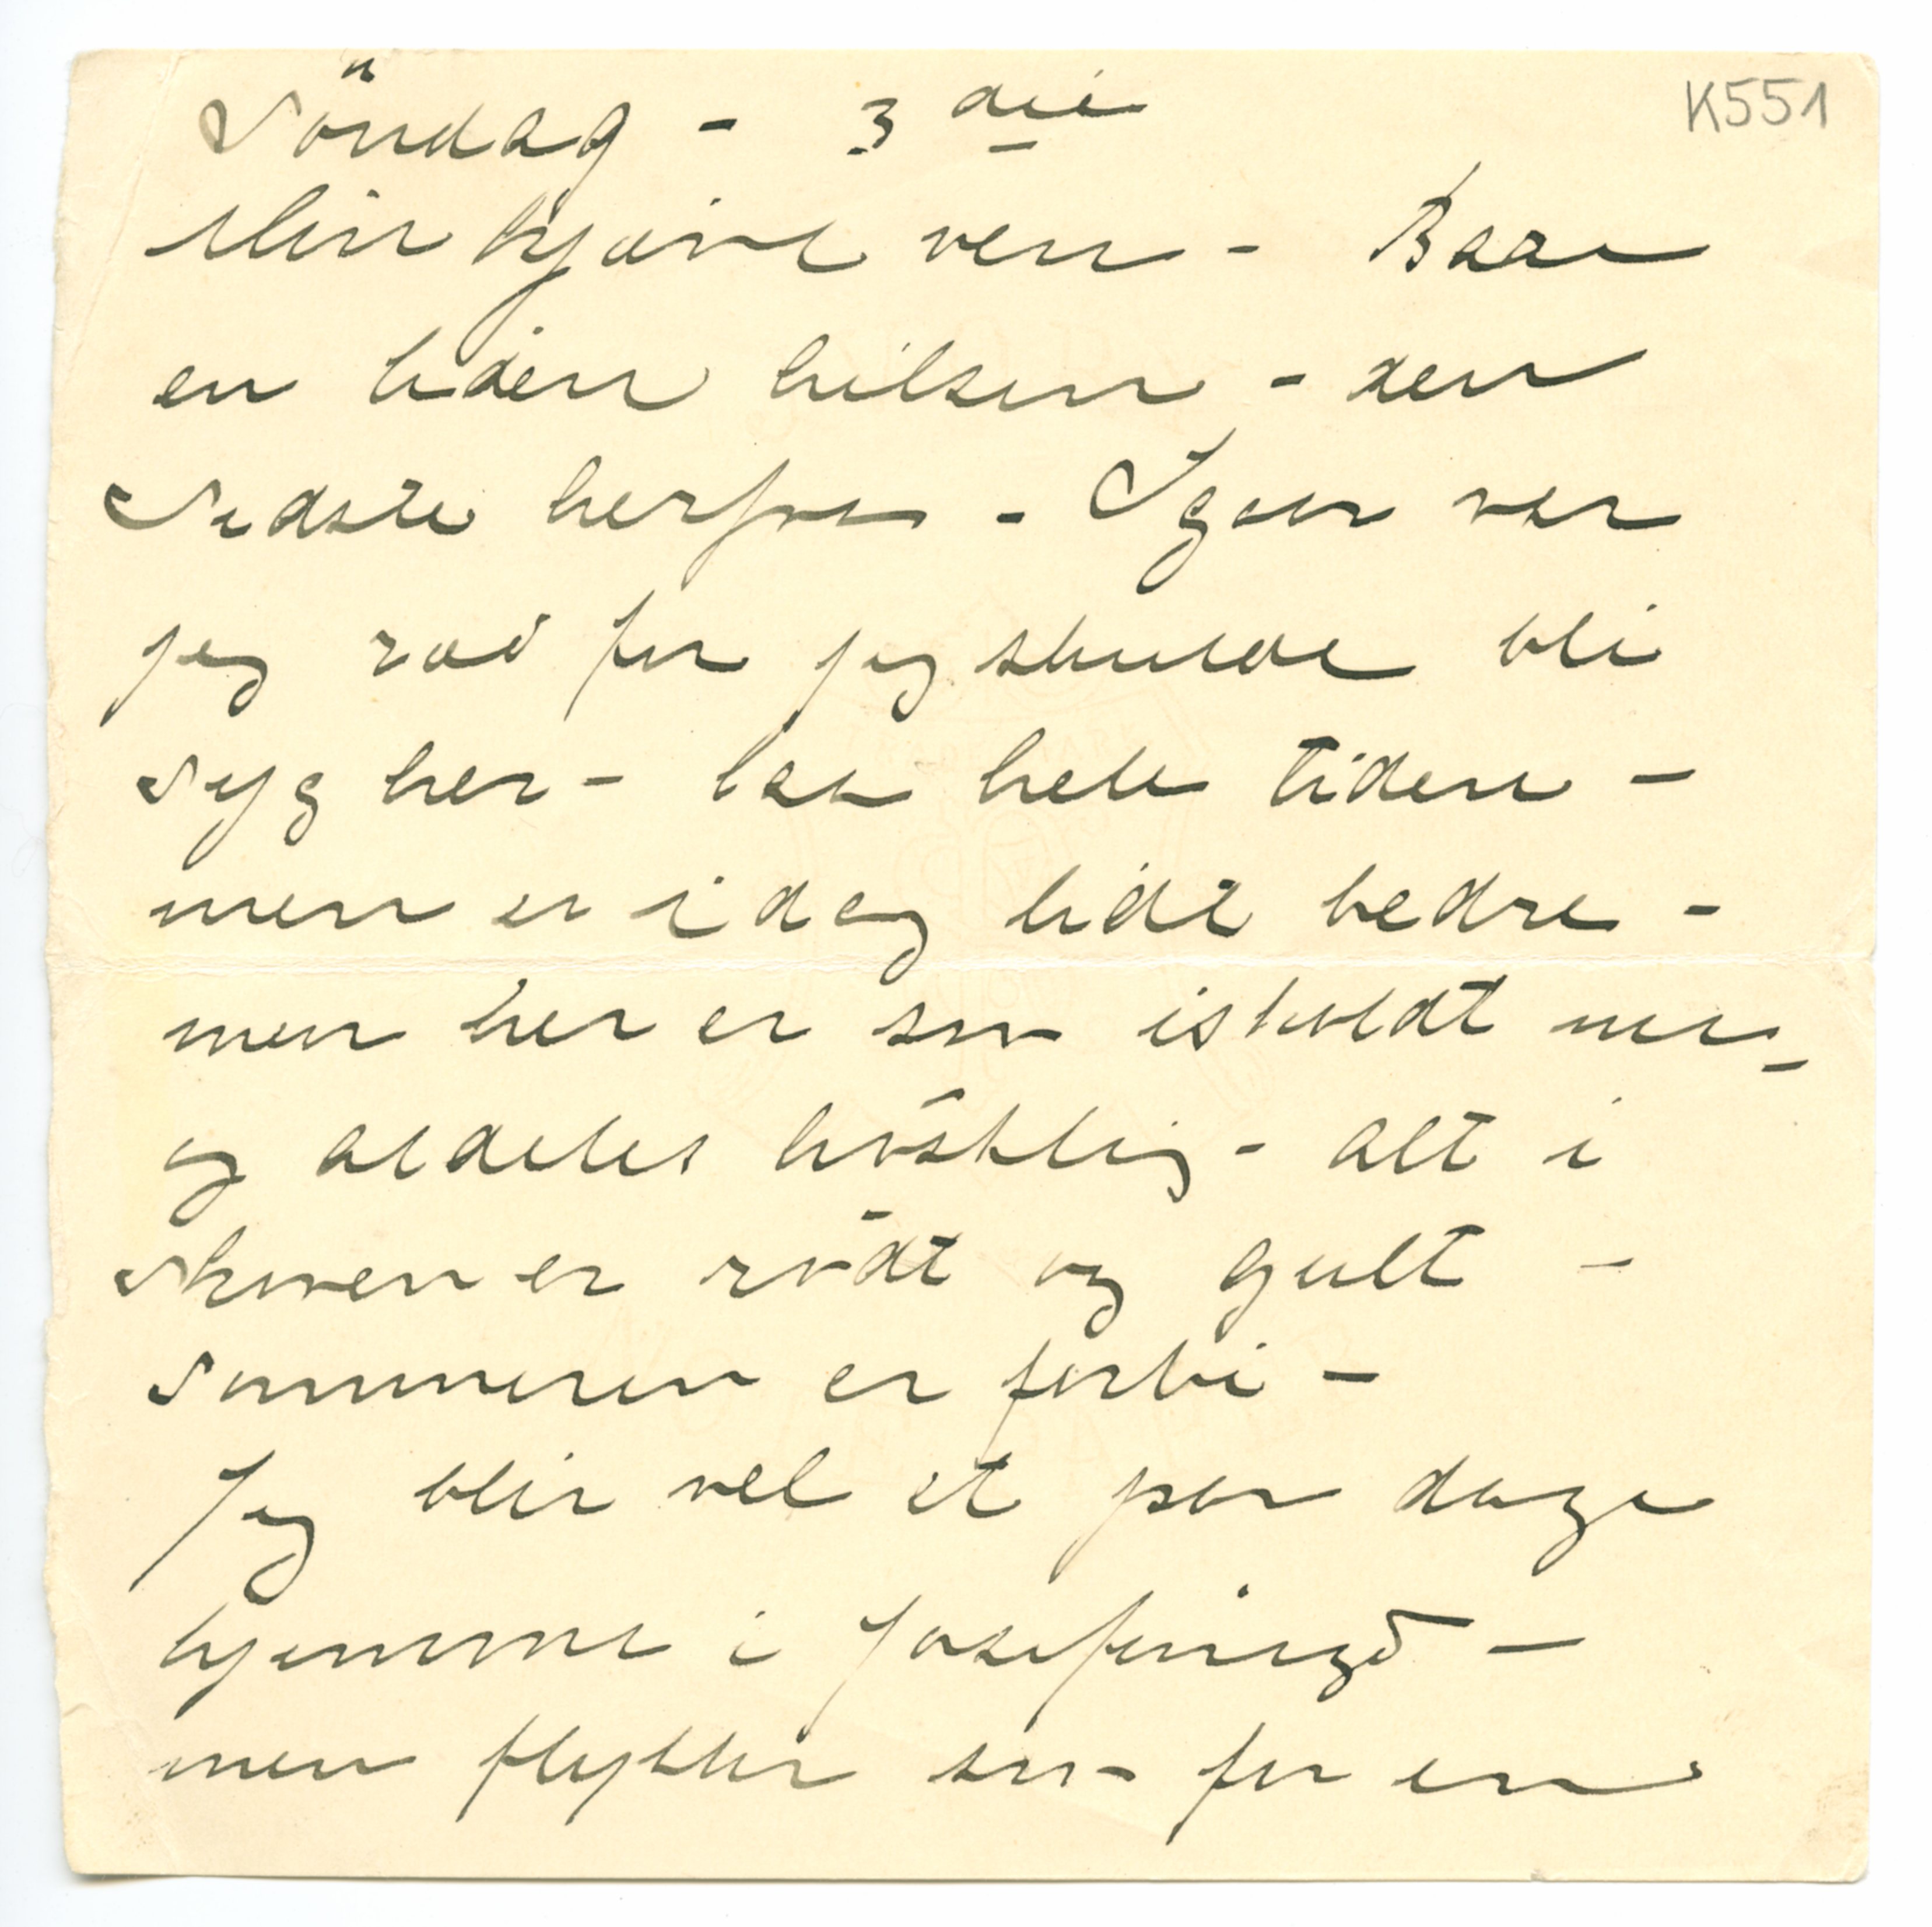 K551
Söndag - 3 die
Min kjære ven - Bare
en liden hilsen - den
sidste herfra - Igaar var
jeg ræd for jeg skulde bli
syg her - laa hele tiden -
men er idag lidt bedre -
men her er saa iskoldt nu -
og aldeles höstlig - alt i
skoven er rödt og gult -
sommeren er forbi -
Jeg blir vel et par dage
hjemme i Josefinegd -
men flytter saa for en